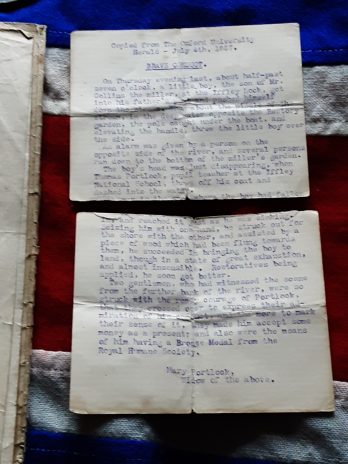 Copied from The Oxford University
Herald - July 4th, 1857.
BRAVE CONDUCT.
On Thursday evening last, about half-past
seven o'clock, a little boy, the son of Mr.
Collins the miller, at the Iffley Lock, got
into his father's
opposite the factory
garden, the pole under the boat, and
elevating the handle, threw the little boy over
the side.
An alarm was given by a person on the
opposite side of the river, and several persons
ran down to the bottom of the miller's garden.
The boy's head was just disappearing, when
Thomas Portlock, pupil teacher at the Iffley
National School, off his coat and
dashed into the water.
where the boy had
reached it just as he was sinking.
Seizing him with one hand, he struck out for
the shore with the other, and assisted by a
piece of wood which had been flung towards
them, he succeeded in bringing the boy to
land, though in a state of great exhaustion,
and almost insensible. Restoratives being
applied, he soon got better.
Two gentlemen, who had witnessed the scene
from the further bank of the river, were so
struck with the courage of Portlock,
to express their
more to mark
their sense of it, they made him accept some
money as a present; and also were the means
of him having a Bronze Medal from the
Royal Humane Society.
Mary Portlock,
Widow of the above.